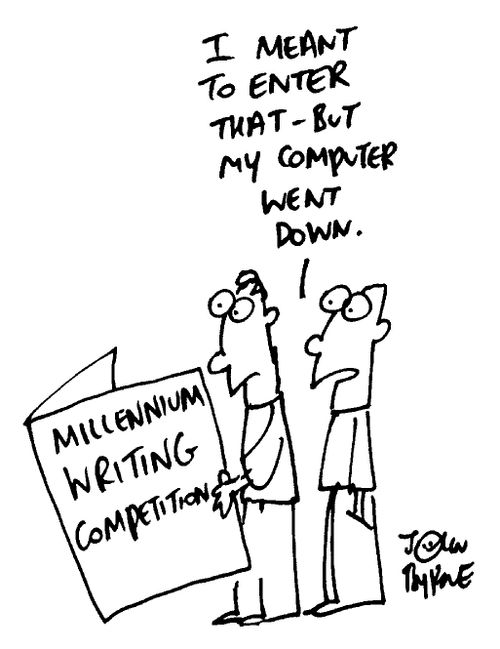 I MEANT
TO ENTER
THAT-BUT
MY COMPUTER
WENT
DOWN.
MILLENNIUM
WRITING
COMPETITION
JOHN
BYRNE